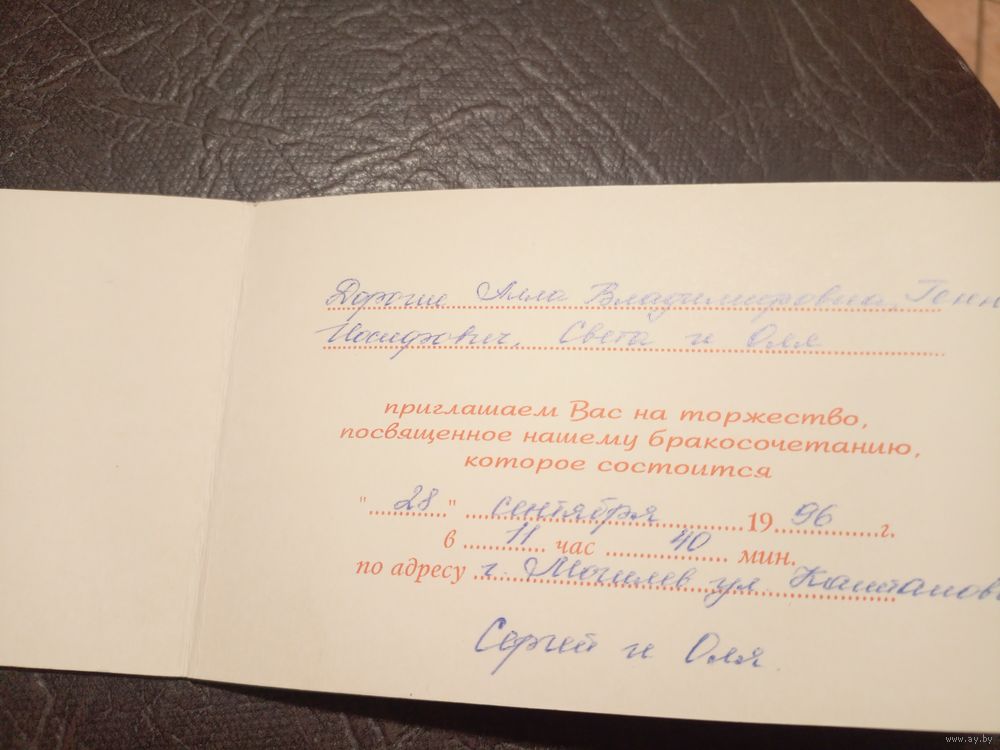 Дорогие Алла Владимировна, Генн
Иосифович, Света и Оля
приглашаем Вас на торжество,
посвященное нашему бракосочетанию,
которое состоится
"28" сентября 1996 г.
в 11 час 40 мин.
по адресу г. Могилев ул. Каштанов
Сергей и Оля.
www.ay.by